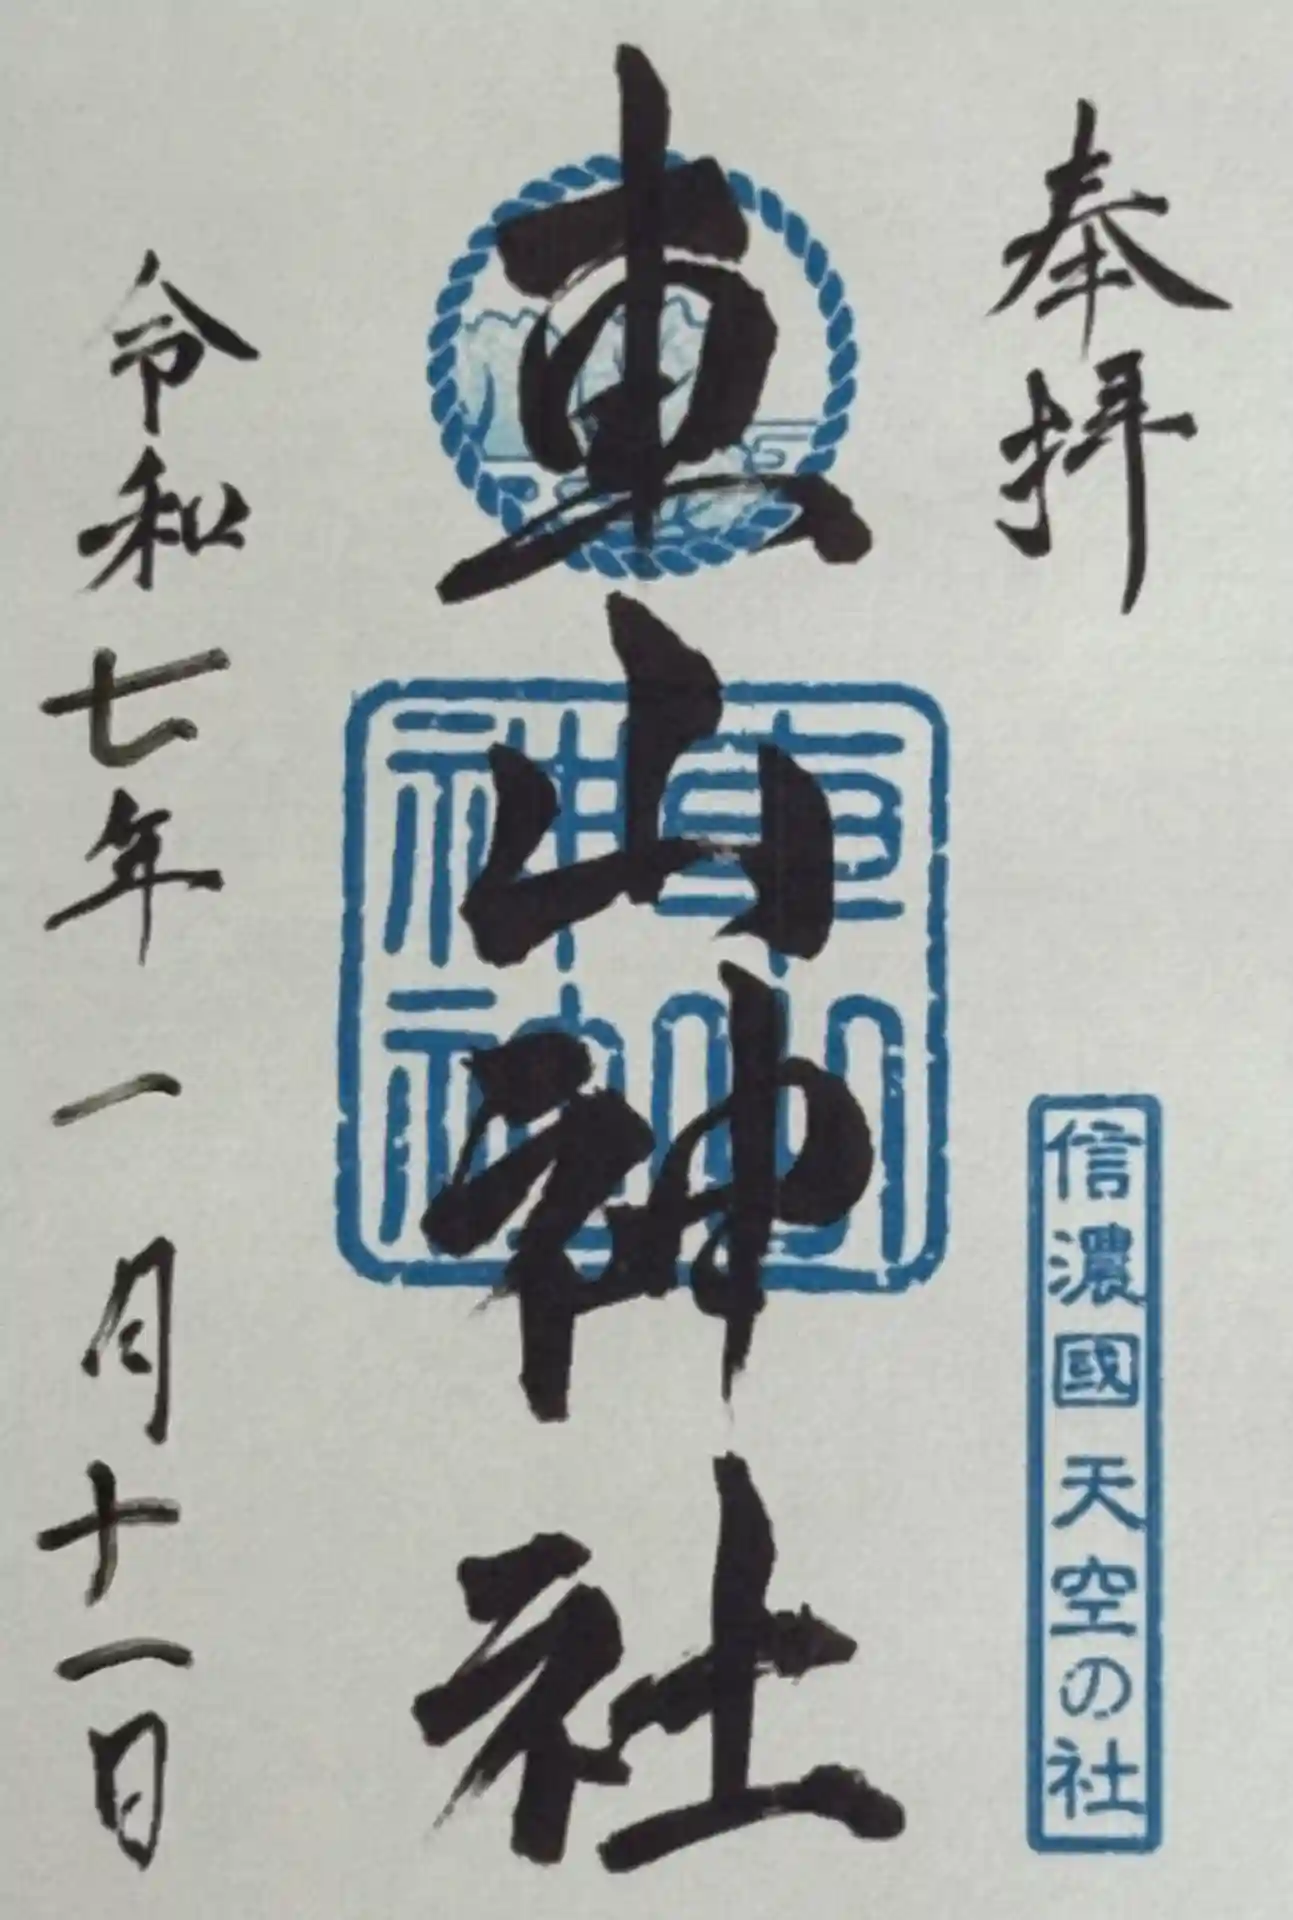 奉拝
信濃國 天空の社
車山神社
車山
神社
令和七年一月十一日